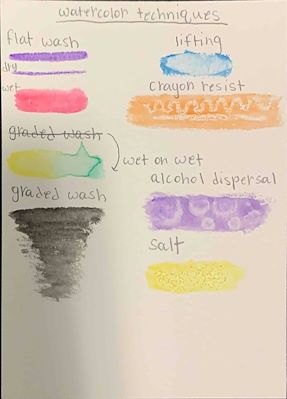 watercolor techniques
flat wash
dry
wet
graded wash
wet on wet
graded wash
lifting
crayon resist
alcohol dispersal
salt